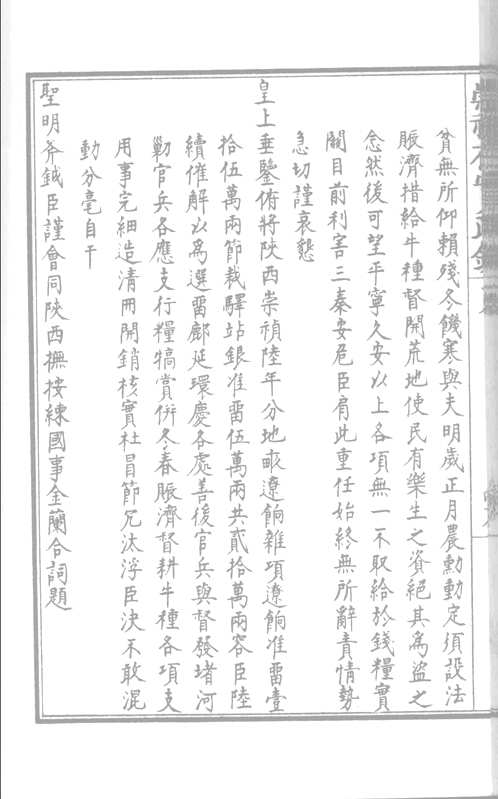 貧無所仰賴殘冬饑寒與夫明歲正月農動動定須設法
賑濟措給牛種督開荒地使民有樂生之資絕其為盜之
念然後可望平寧久安以上各項無一不取給於錢糧實
關目前利害三秦安危臣肩此重任始終無所辭責情勢
急切謹哀懇
皇上垂鑒俯將陝西崇禎陸年分地畝遼餉雜項遼餉准留壹
拾伍萬兩節裁驛站銀准留伍萬兩共貳拾萬兩容臣陸
續催解以為選留鄜延環慶各處善後官兵與督發堵河
勦官兵各應支行糧犒賞併冬春賑濟督耕牛種各項支
用事完細造清冊開銷核實杜冒節冗汰浮臣決不敢混
動分毫自干
聖明斧鉞臣謹會同陝西撫按練國事金蘭合詞題